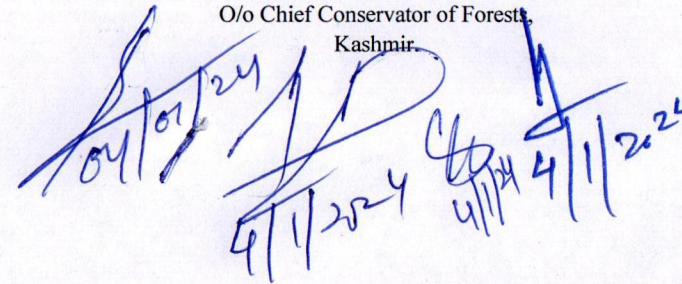 O/o Chief Conservator of Forests,
Kashmir.
04/01/24
4/1/2024
4/1/24
4/1/2024